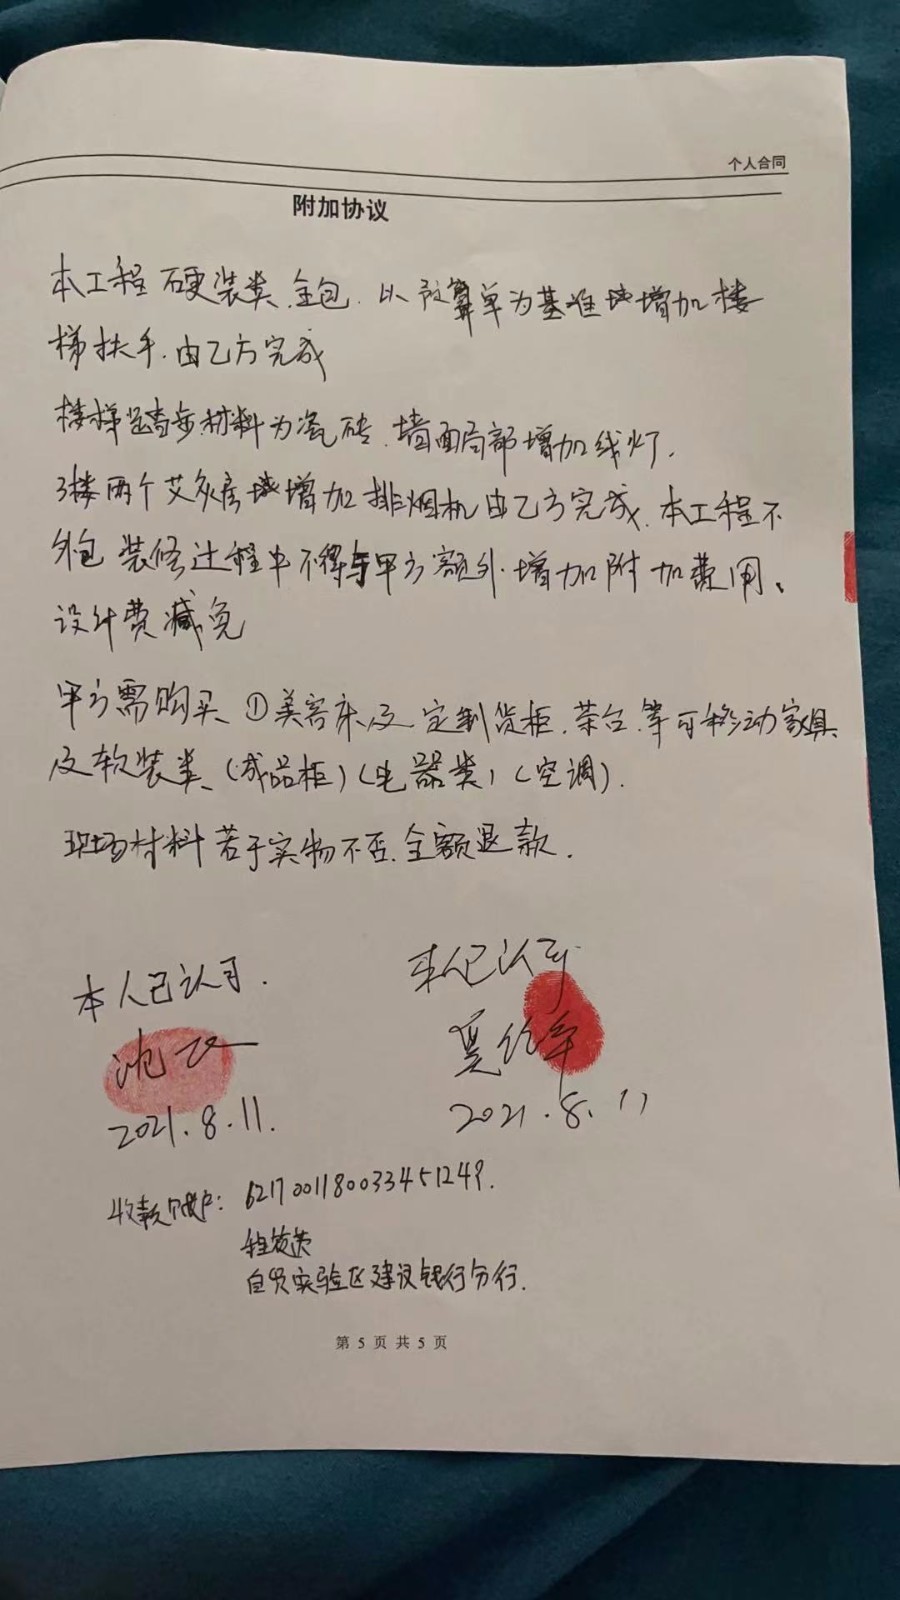 个人合同
附加协议
本工程硬装类全包.以预算单为基准增加楼
梯扶手.由乙方完成
楼梯踏步材料为瓷砖.墙面局部增加线灯.
3楼两个艾灸房增加排烟机由乙方完成.本工程不
外包装修过程中不得与甲方额外增加附加费用、
设计费减免
甲方需购买①美容床及定制货柜.茶台.等可移动家具
及软装类(成品柜)(电器类)(空调).
现场材料若于实物不否.全额退款.
本人已认可.
本人已认可.
沈
夏
2021.8.11.
2021.8.11
收款账户: 6217001180033451249.
自贸实验区建设银行分行.
第 5 页 共 5 页